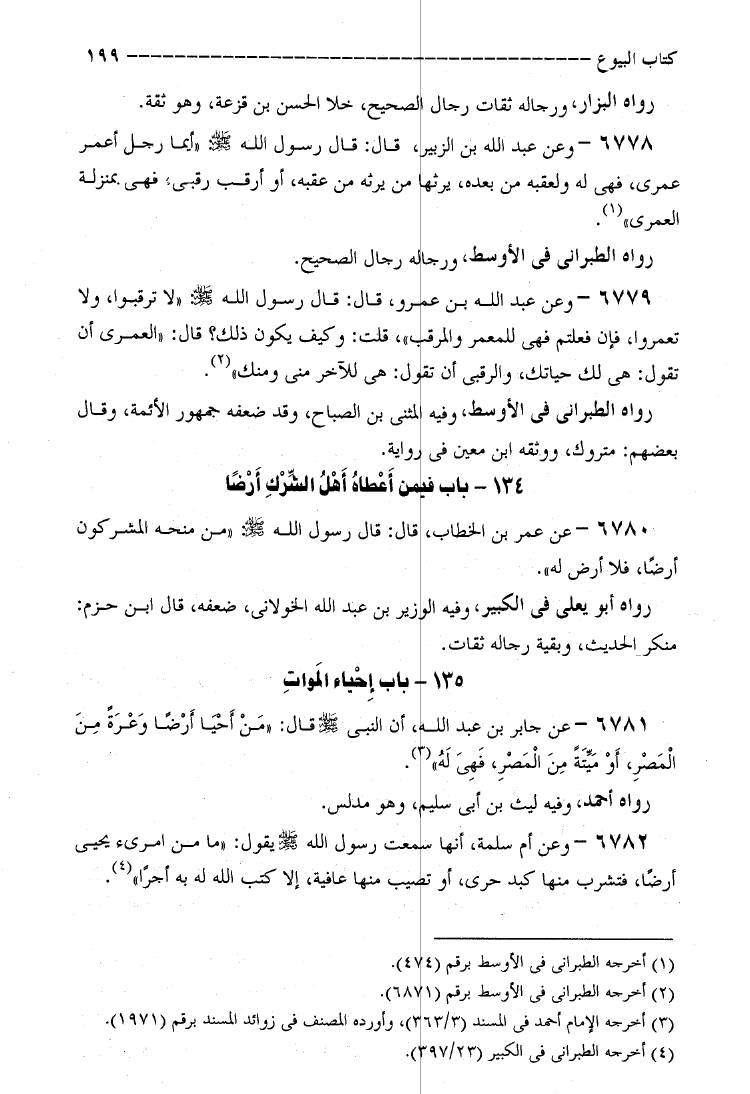 كتاب البيوع ------------------------------------------ ١٩٩
رواه البزار، ورجاله ثقات رجال الصحيح، خلا الحسن بن قزعة، وهو ثقة.
٦٧٧٨ - وعن عبد الله بن الزبير، قال: قال رسول الله ﷺ «أيما رجل أعمر
عمرى، فهى له ولعقبه من بعده، يرثها من يرثه من عقبه، أو أرقب رقبى، فهى بمنزلة
العمرى»(١).
رواه الطبرانى فى الأوسط، ورجاله رجال الصحيح.
٦٧٧٩ - وعن عبد الله بن عمرو، قال: قال رسول الله ﷺ: «لا ترقبوا، ولا
تعمروا، فإن فعلتم فهى للمعمر والمرقب»، قلت: وكيف يكون ذلك؟ قال: «العمرى أن
تقول: هى لك حياتك، والرقبى أن تقول: هى للآخر منى ومنك»(٢).
رواه الطبرانى فى الأوسط، وفيه المثنى بن الصباح، وقد ضعفه جمهور الأئمة، وقال
بعضهم: متروك، ووثقه ابن معين فى رواية.
١٣٤ - باب فيمن أَعْطاهُ أَهْلُ الشِّرْكِ أَرْضًا
٦٧٨٠ - عن عمر بن الخطاب، قال: قال رسول الله ﷺ: «من منحه المشركون
أرضًا، فلا أرض له».
رواه أبو يعلى فى الكبير، وفيه الوزير بن عبد الله الخولانى، ضعفه، قال ابن حزم:
منكر الحديث، وبقية رجاله ثقات.
١٣٥ - باب إِحْياء المَواتِ
٦٧٨١ - عن جابر بن عبد الله، أن النبى ﷺ قال: «مَنْ أَحْيَا أَرْضًا وَعْرَةً مِنَ
الْمَصْرِ، أَوْ مَيِّتَةً مِنَ الْمَصْرِ، فَهِىَ لَهُ»(٣).
رواه أحمد، وفيه ليث بن أبى سليم، وهو مدلس.
٦٧٨٢ - وعن أم سلمة، أنها سمعت رسول الله ﷺ يقول: «ما من امرىء يحيى
أرضًا، فتشرب منها كبد حرى، أو تصيب منها عافية، إلا كتب الله له به أجرًا»(٤).
(١) أخرجه الطبرانى فى الأوسط برقم (٤٧٤).
(٢) أخرجه الطبرانى فى الأوسط برقم (٦٨٧١).
(٣) أخرجه الإمام أحمد فى المسند (٣٦٣/٣)، وأورده المصنف فى زوائد المسند برقم (١٩٧١).
(٤) أخرجه الطبرانى فى الكبير (٣٩٧/٢٣).